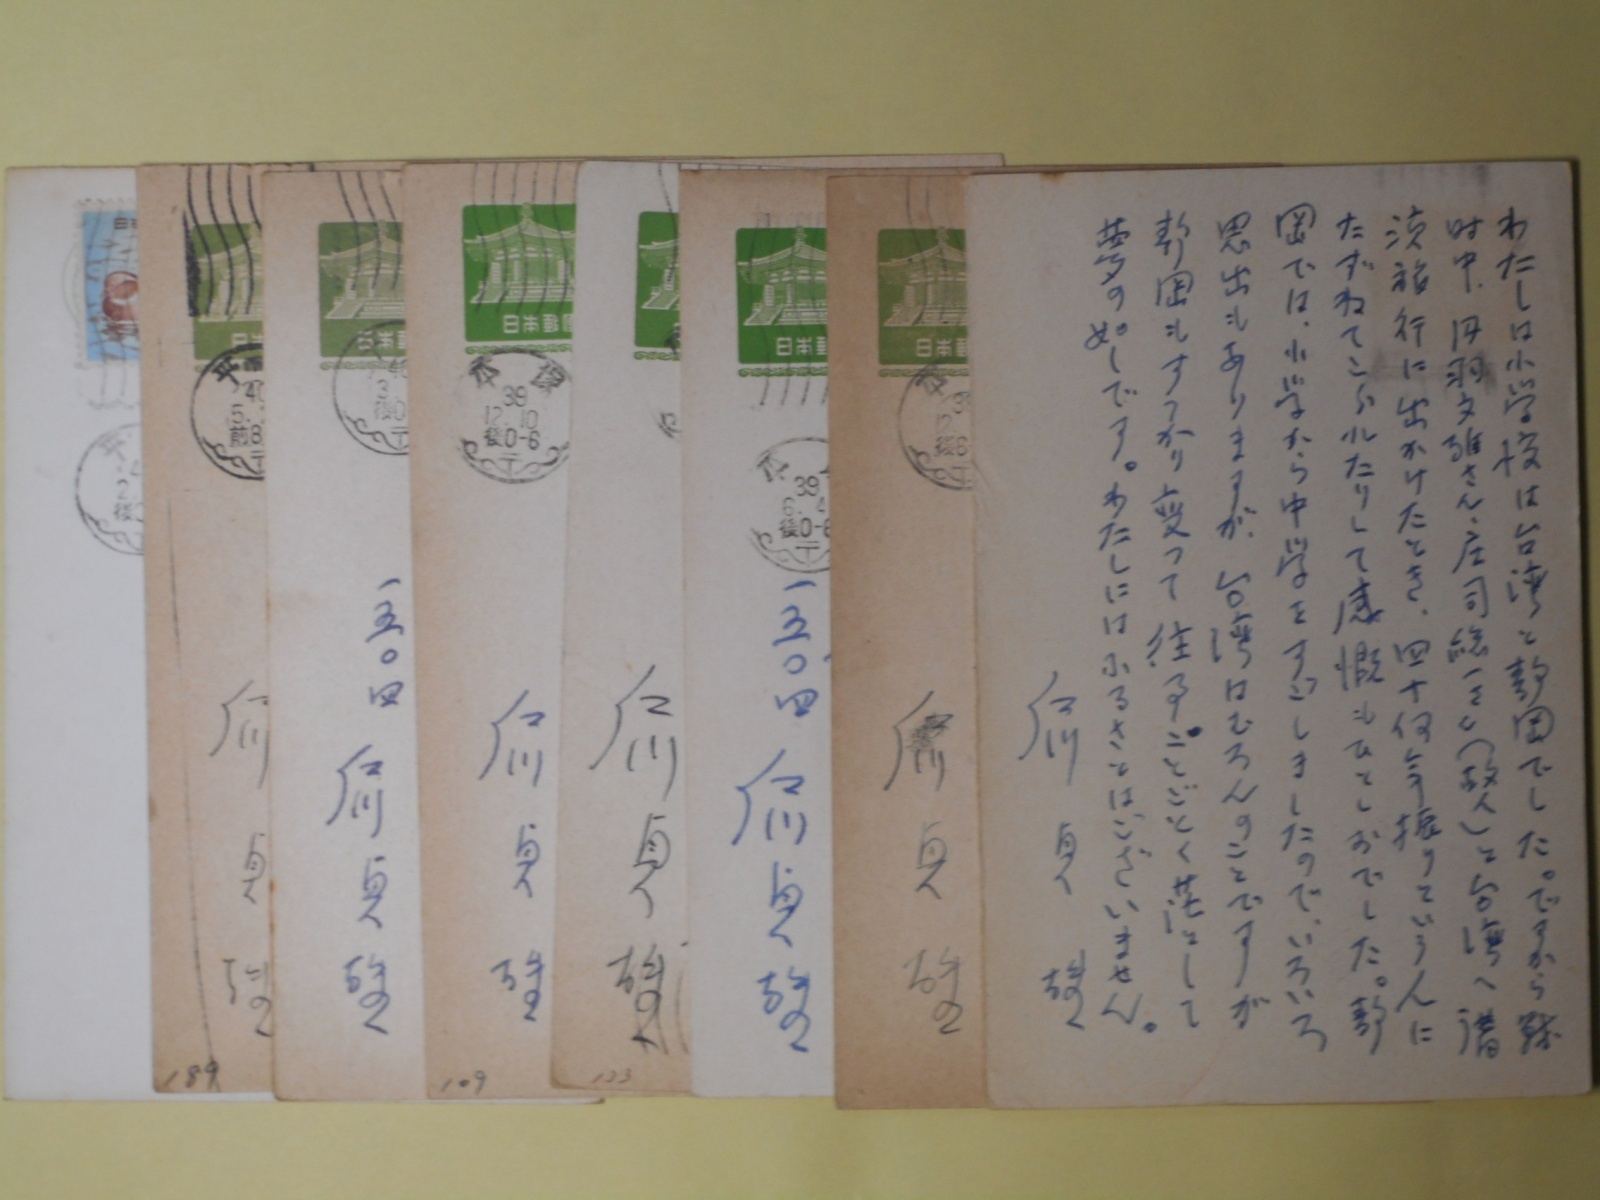 わたしは小学校は台湾と静岡でした。ですから戦
時中、丹羽文雄さん、庄司総一さん(故人)と台湾へ講
演旅行に出かけたとき、四十何年振りというんに
たずねてこられたりして感慨もひとしおでした。静
岡では、小学から中学をすごしましたので、いろいろ
思出もありますが、台湾はむろんのことですが
静岡もすっかり変って往事ことごとく茫として
夢の如しです。わたしにはふるさとはございません。
貞雄
日本郵
39
後6
貞雄
日本郵
39
6.4
後0-6
一五〇四
貞雄
貞雄
133
日本郵便
39
12.10
後0-6
貞雄
109
日本郵
40
3
後0
一五〇四
貞雄
日
40
5.
前8
貞雄
189
日本
2
後